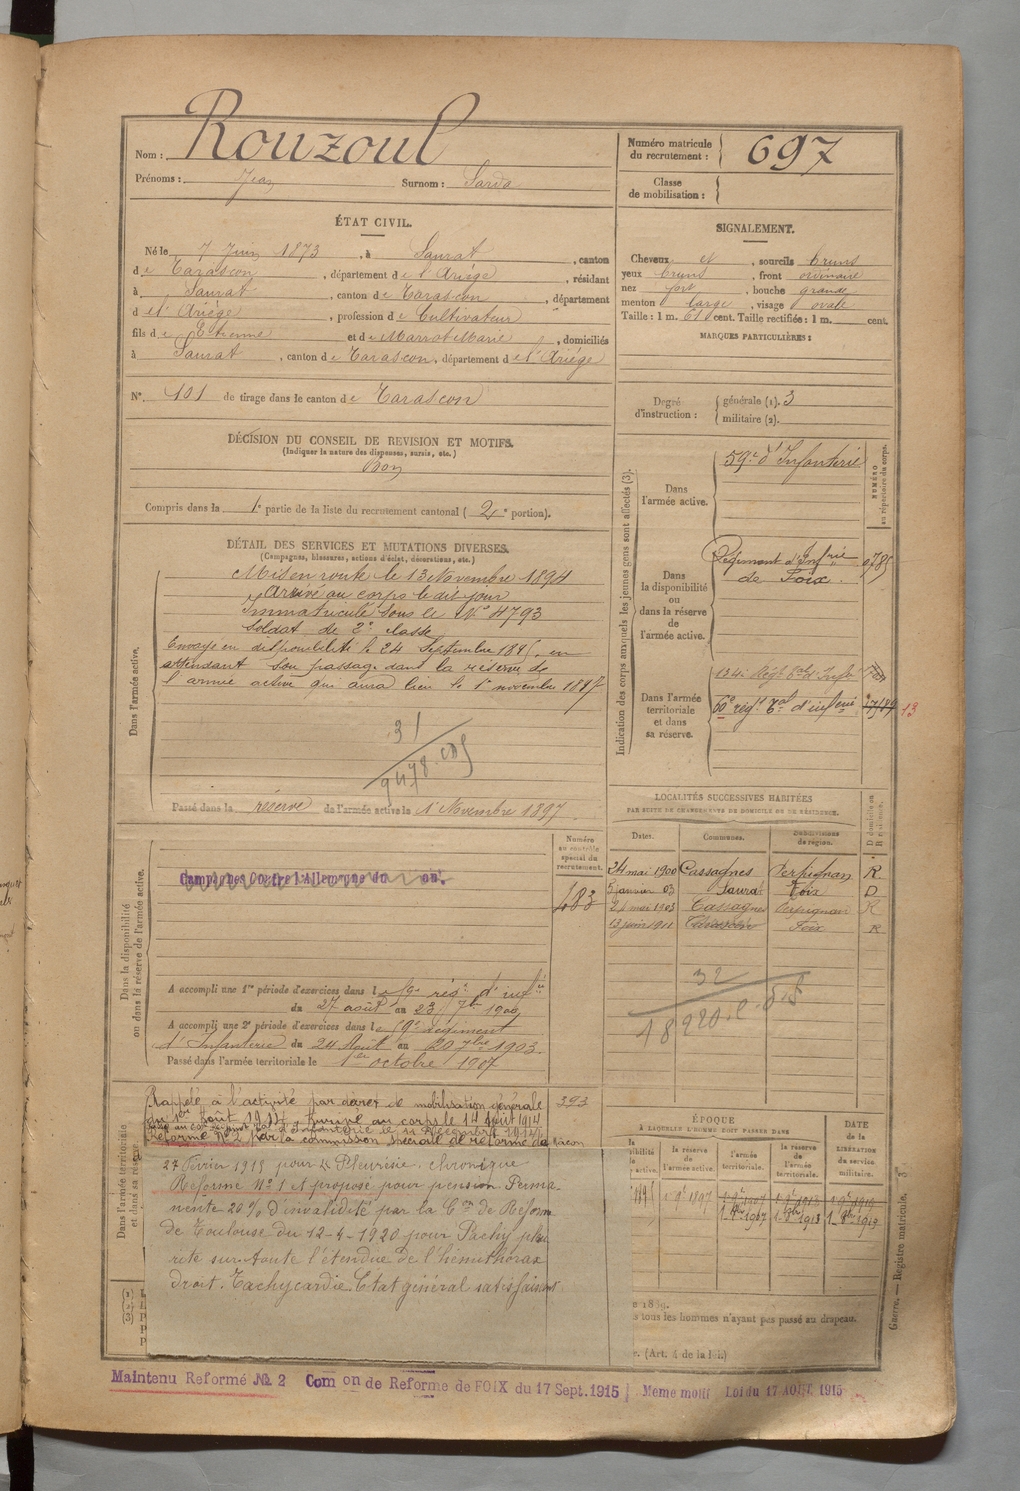 Nom : Rouzoul
Prénoms : Jean Surnom : Sarda
Numéro matricule du recrutement : 697
Classe de mobilisation :
ÉTAT CIVIL.
Né le 7 Juin 1873, à Saurat, canton
de Tarascon, département de l'Ariége, résidant
à Saurat, canton de Tarascon, département
d el'Ariége, profession de Cultivateur
fils de Etienne et de Marrot Marie, domiciliés
à Saurat, canton de Tarascon, département de l'Ariége
N° 101 de tirage dans le canton de Tarascon
DÉCISION DU CONSEIL DE REVISION ET MOTIFS.
(Indiquer la nature des dispenses, sursis, etc.)
Bon
Compris dans la 1e partie de la liste du recrutement cantonal (2e portion).
SIGNALEMENT.
Cheveux et, sourcils bruns
yeux bruns, front ordinaire
nez fort, bouche grande
menton large, visage ovale
Taille : 1 m. 61 cent. Taille rectifiée : 1 m. cent.
MARQUES PARTICULIÈRES :
Degré d'instruction : générale (1). 3
militaire (2).
DÉTAIL DES SERVICES ET MUTATIONS DIVERSES.
(Campagnes, blessures, actions d'éclat, décorations, etc.)
Dans l'armée active.
Mis en route le 13 Novembre 1894
Arrivé au corps le dit jour
Immatriculé sous le N° 4793
Soldat de 2e classe
Envoyé en disponibilité le 24 Septembre 1895, en
attendant son passage dans la réserve de
l'armée active qui aura lieu le 1er novembre 1897
31
Passé dans la réserve de l'armée active le 1er Novembre 1897
Indication des corps auxquels les jeunes gens sont affectés (3).
NUMÉRO au répertoire du corps.
Dans l'armée active.
59e d'Infanterie
Dans la disponibilité ou dans la réserve de l'armée active.
Régiment d'Infrie
de Foix.
Dans l'armée territoriale et dans sa réserve.
134e Régt tal d'Infie
13
Dans la disponibilité ou dans la réserve de l'armée active.
Numéro au contrôle spécial du recrutement.
Campagnes Contre l'Allemagne du au.
483
A accompli une 1re période d'exercices dans le 59e régt d'infie
du 27 août au 23 7bre 1900
A accompli une 2e période d'exercices dans le 59e Régiment
d'Infanterie du 24 Août au 20 7bre 1903.
Passé dans l'armée territoriale le 1er octobre 1907
LOCALITÉS SUCCESSIVES HABITÉES
PAR SUITE DE CHANGEMENTS DE DOMICILE OU DE RÉSIDENCE.
Dates. Communes. Subdivisions de région. D domicile ou R résidence.
24 mai 1900 Cassagnes Perpignan R
5 janvier 03 Saurat Foix D
24 mai 1903 Cassagnes Perpignan R
13 juin 1911 Tarascon Foix R
32
Dans l'armée territoriale et dans sa réserve
Rappelé à l'activité par décret de mobilisation générale
du 1er Août 1914. Arrivé au corps le 14 Août 1914
393
Réformé N° 2 par la commission spéciale de réforme de Macon
27 Février 1915 pour « Pleurésie chronique
Réforme N° 1 et proposé pour pension Perma
nente 20% d'invalidité par la Con de Réform
de Toulouse du 12-4-1920 pour Pachy pleu
rite sur toute l'étendue de l'hémithorax
droit. Tachycardie. Etat général satisfaisant
ÉPOQUE
À LAQUELLE L'HOMME DOIT PASSER DANS
la réserve de l'armée active. l'armée territoriale. la réserve de l'armée territoriale.
DATE de la LIBÉRATION du service militaire.
tous les hommes n'ayant pas passé au drapeau.
(Art. 4 de la loi.)
Guerre. — Registre matricule,
Maintenu Reformé № 2 Comon de Reforme de FOIX du 17 Sept. 1915 Meme motif Loi du 17 AOUT 1915